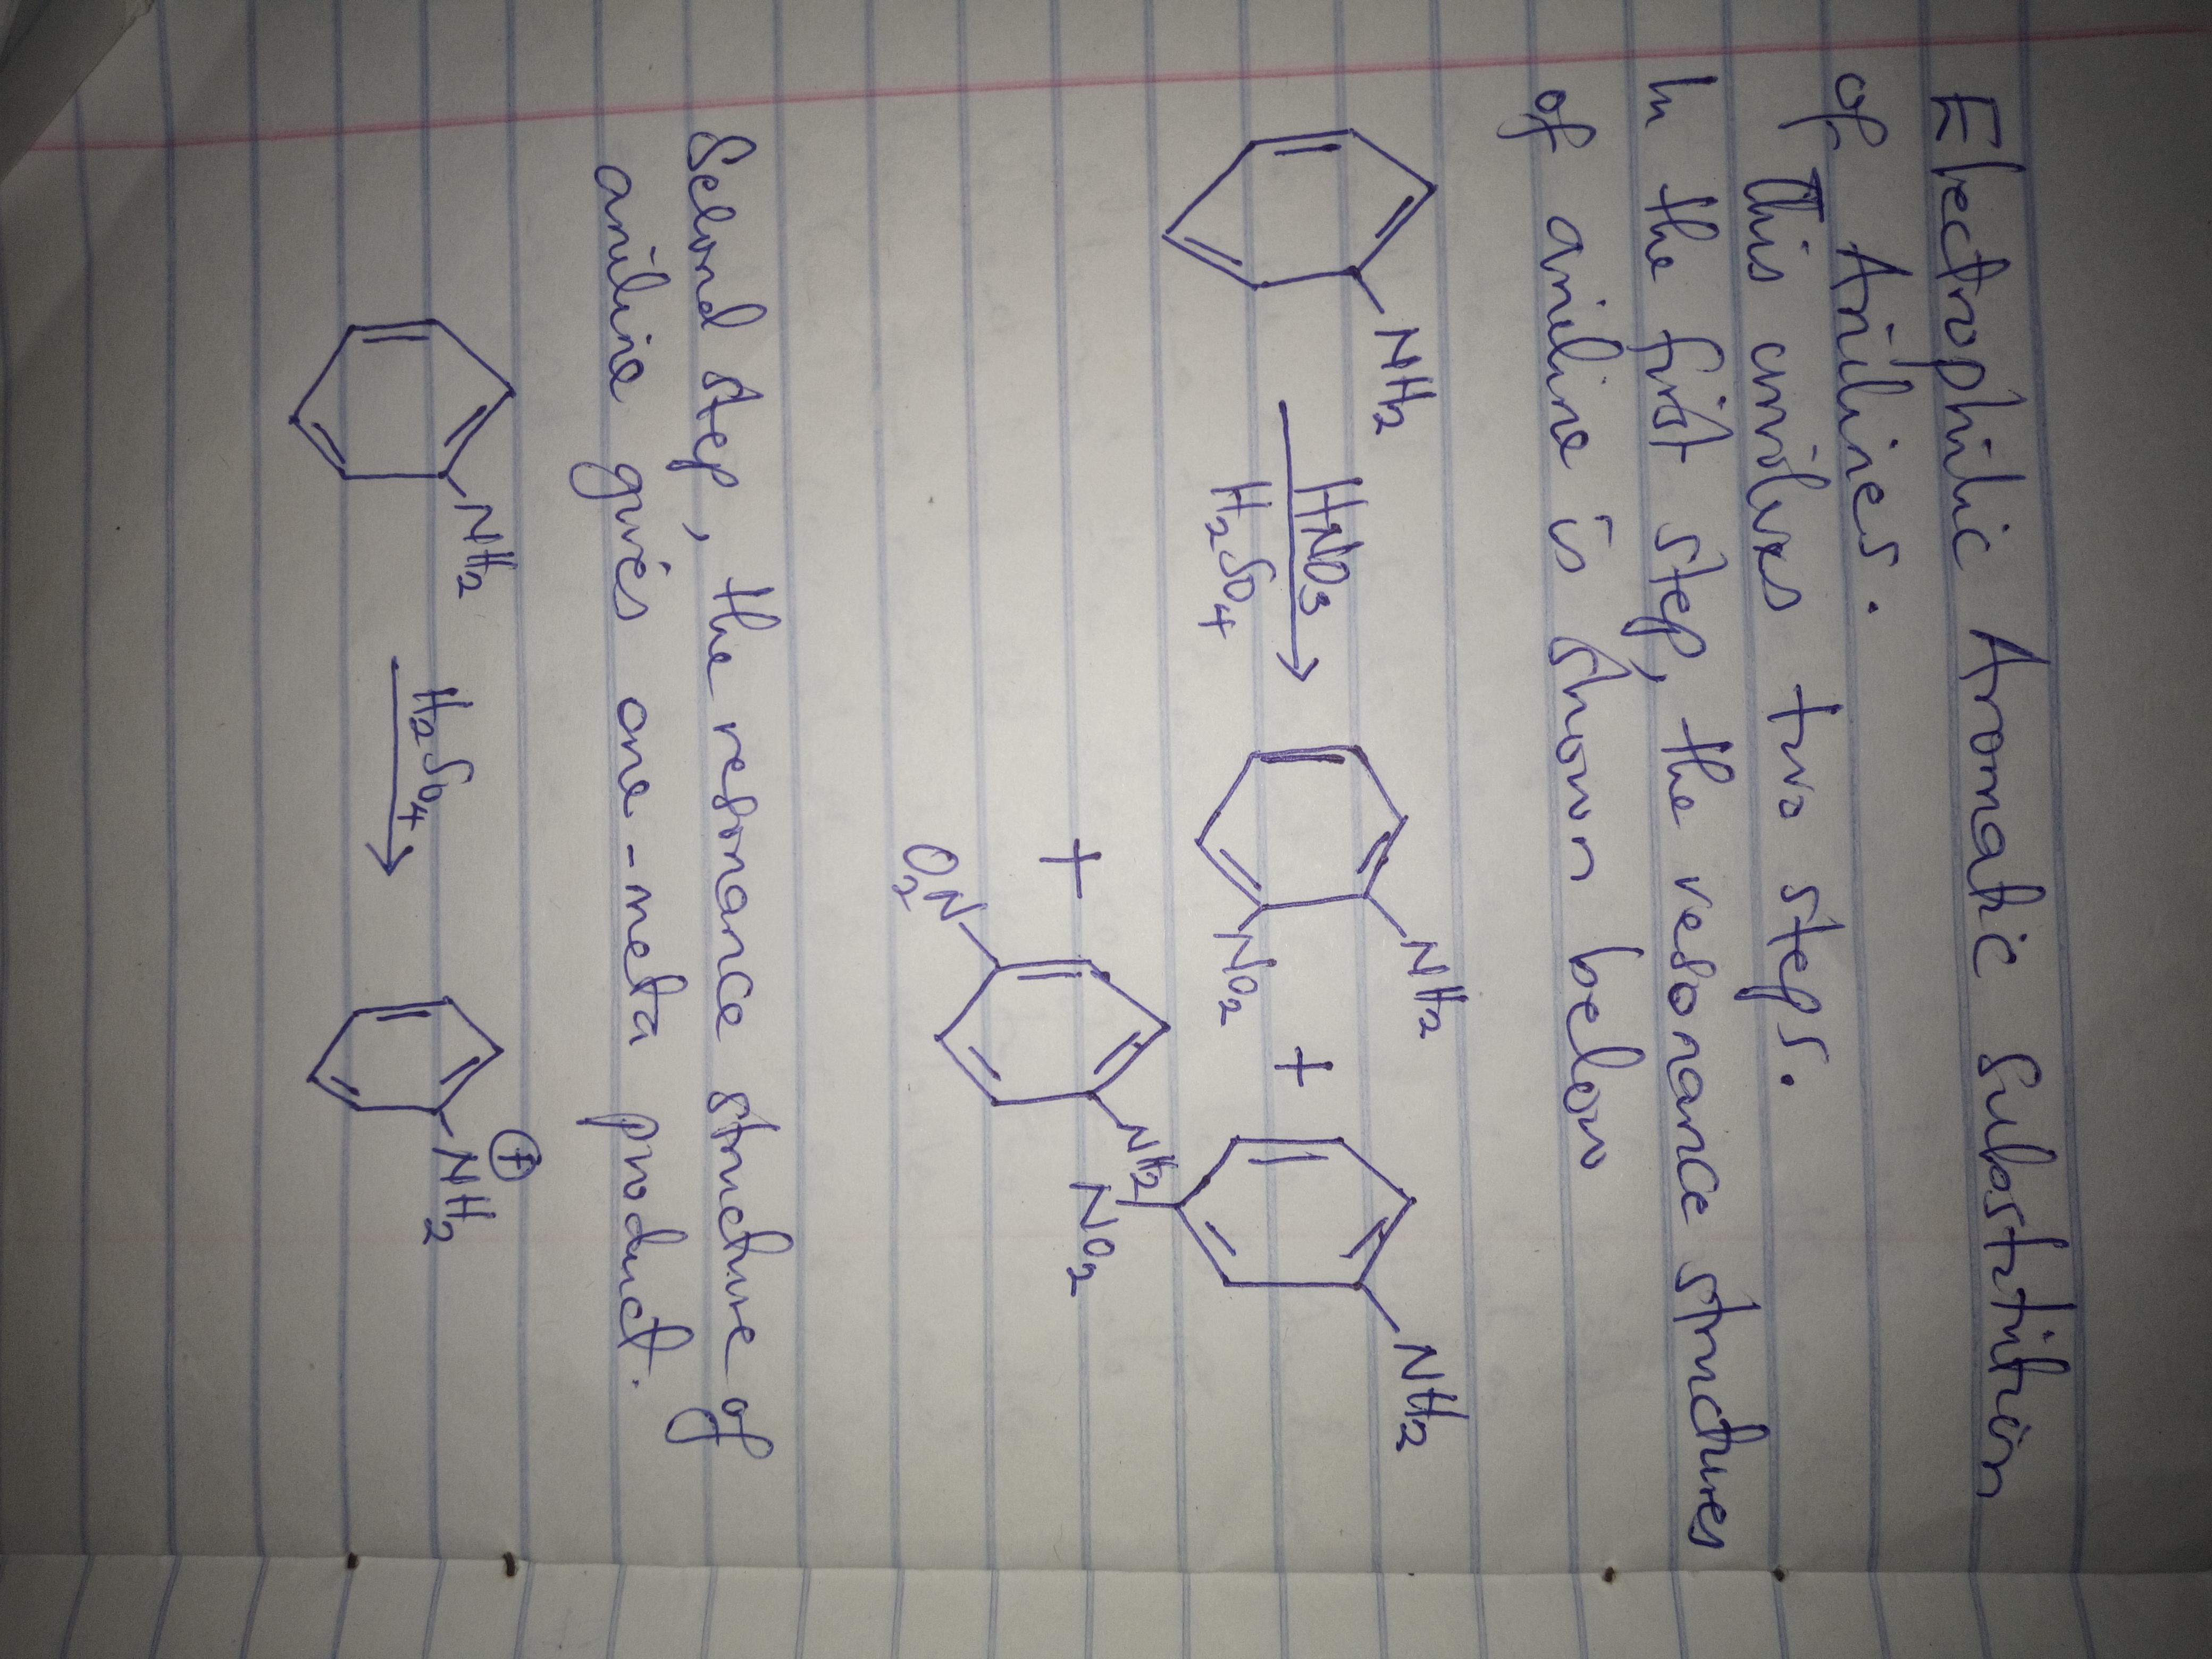 Electrophilic Aromatic Substitution
of Anilines.
This involves two steps.
In the first step, the resonance structures
of aniline is shown below
NH₂
HNO₃
H₂SO₄
NH₂
NO₂
+
NH₂
NO₂
+
O₂N
NH₂
Second step, the resonance structure of
aniline gives one-meta product.
NH₂
H₂SO₄
⊕
NH₂